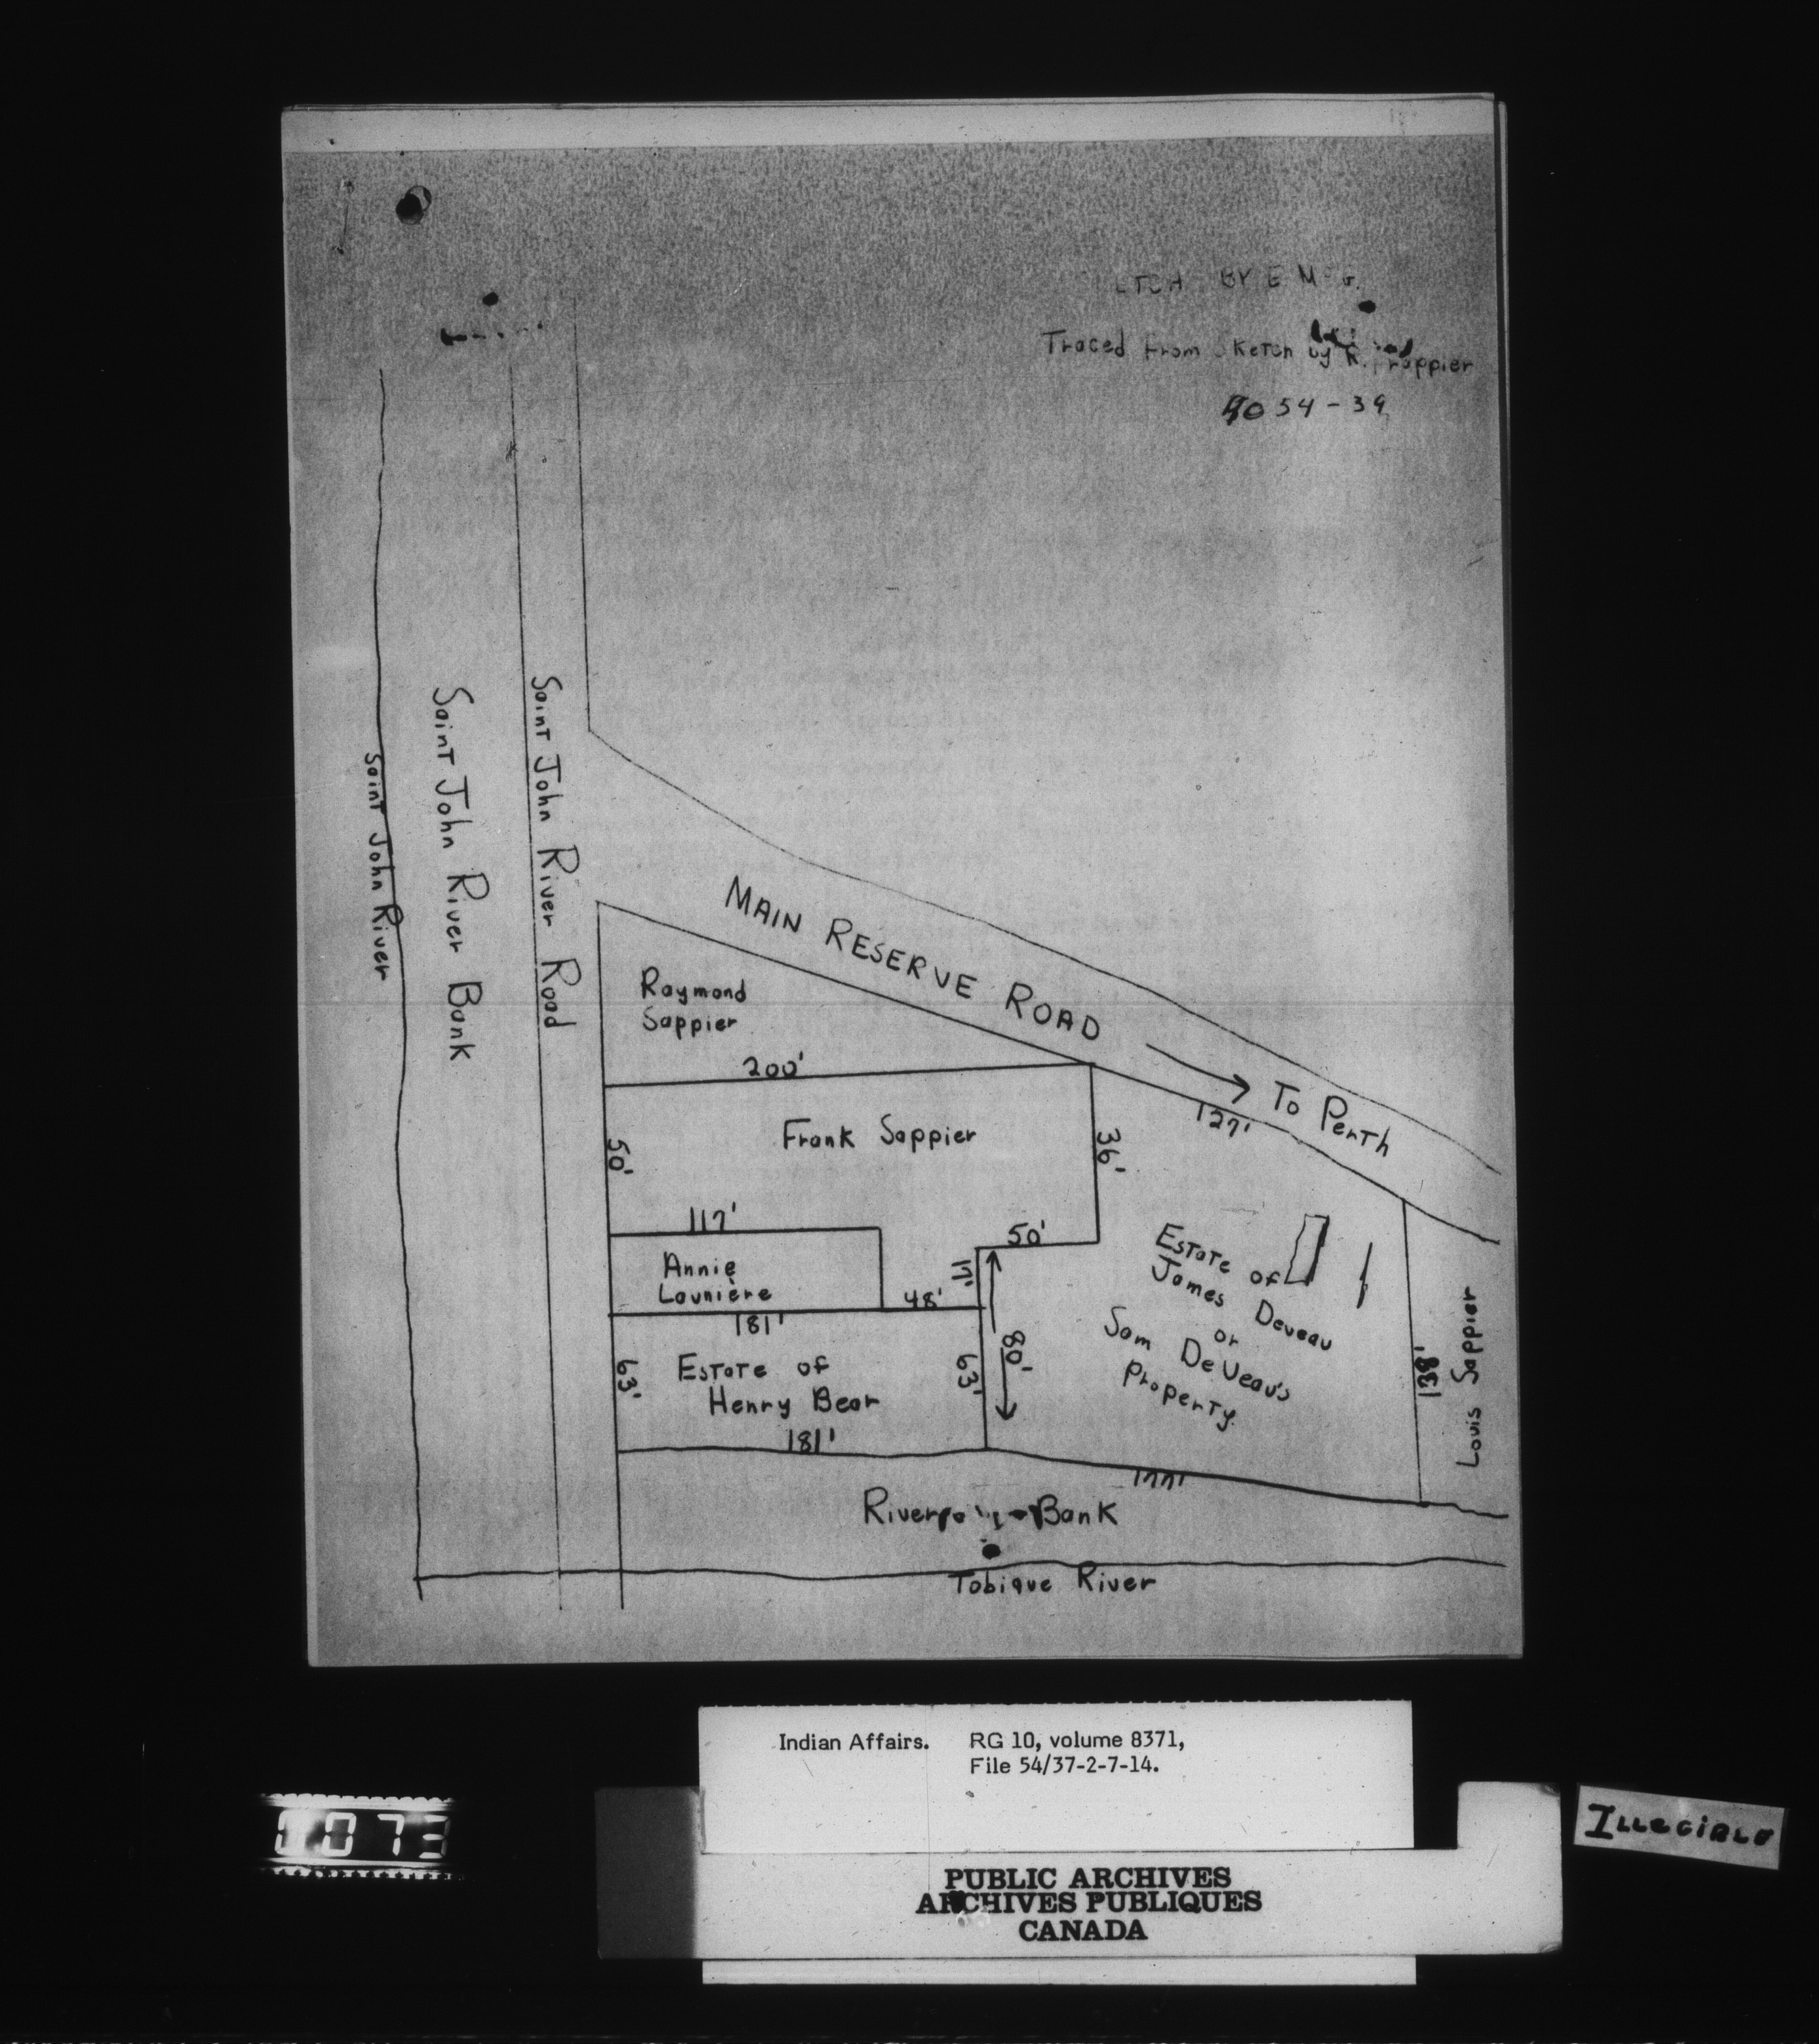 BY E. McG.
Traced from Sketch by R.
4054-39
Saint John River
Saint John River Bank
Saint John River Road
MAIN RESERVE ROAD
To Perth
Raymond
Sappier
200'
127'
Frank Sappier
50'
36'
117'
50'
Annie
Lounière
17'
48'
181'
Estate of
James Deveau
or
Sam DeVeau's
Property.
80'
63'
Estate of
Henry Bear
63'
138'
Louis Sappier
181'
177'
River Bank
Tobique River
Indian Affairs. RG 10, volume 8371,
File 54/37-2-7-14.
PUBLIC ARCHIVES
ARCHIVES PUBLIQUES
CANADA
ILLEGIBLE